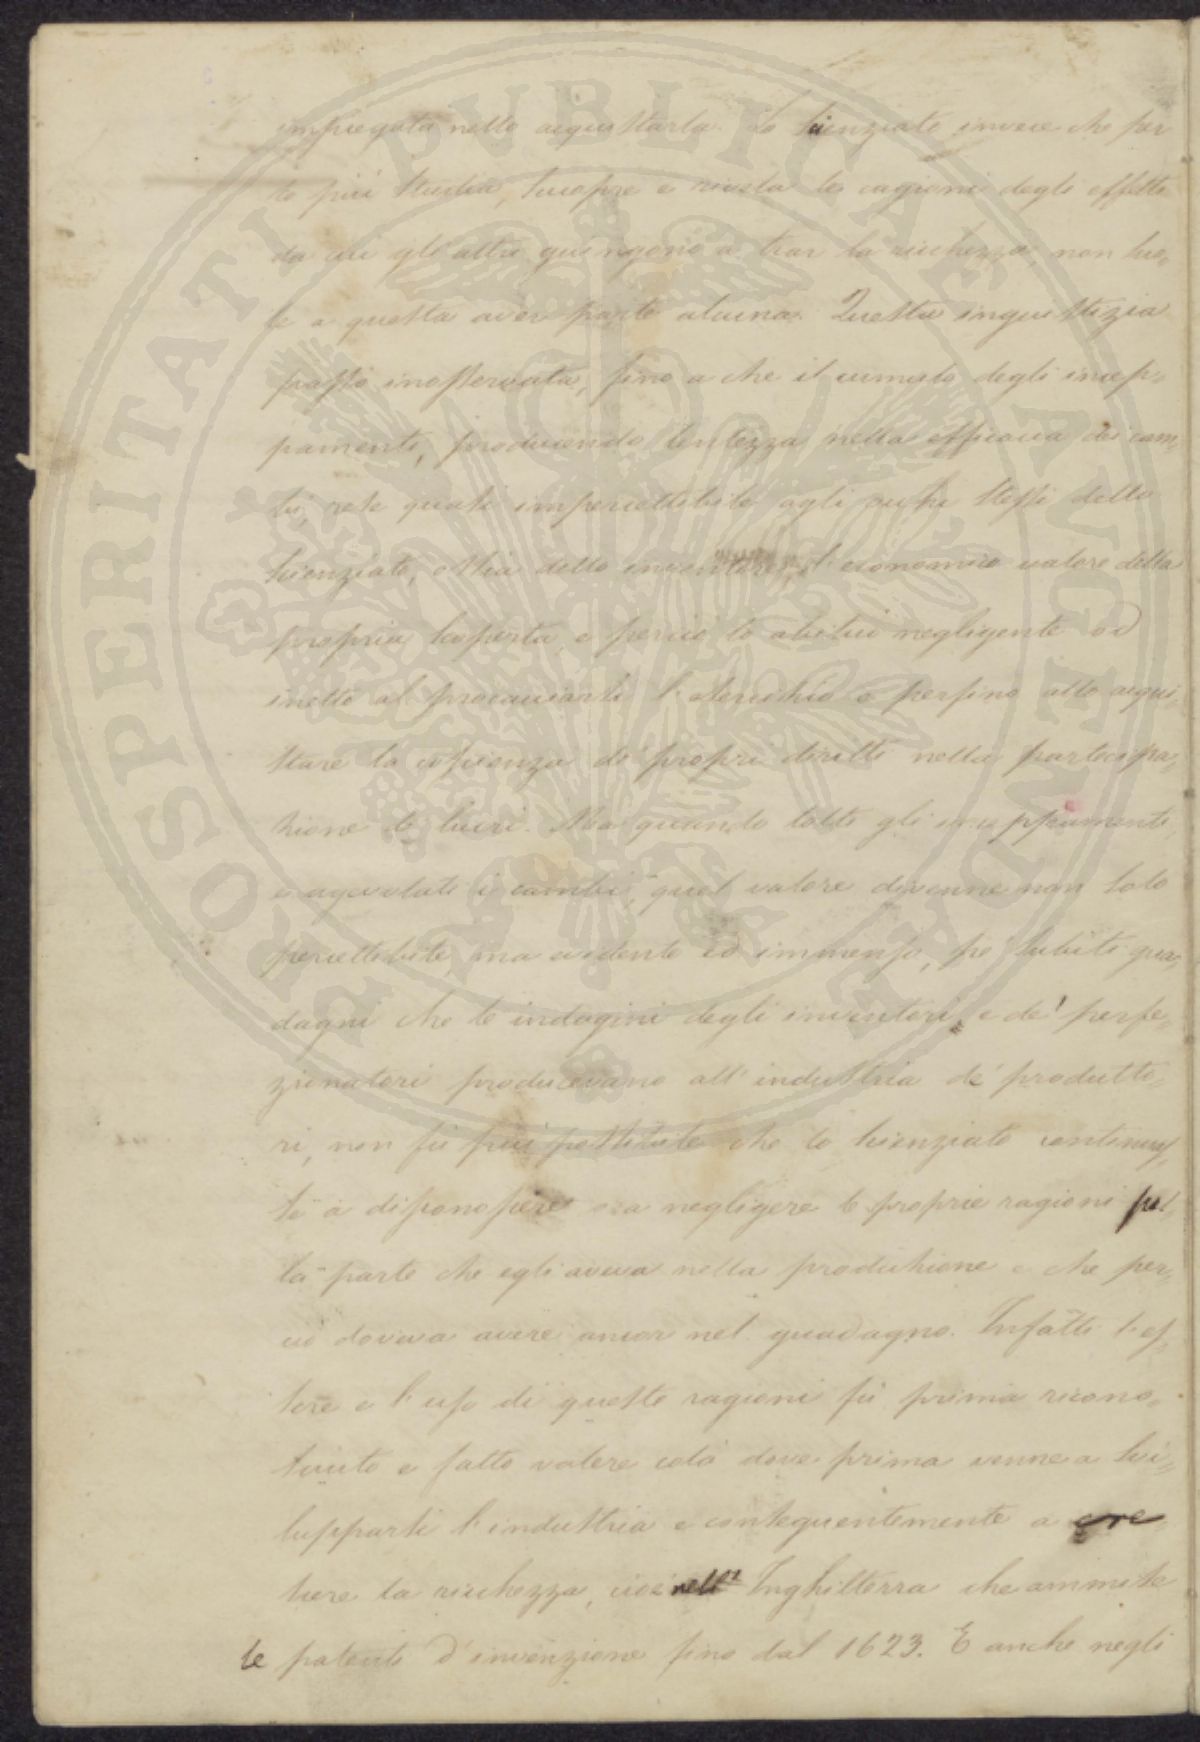 impiegata nello acquistarla. Lo scienziato invece che per
lo più studia, scuopre e rivela le cagioni degli effetti
da cui gli altri giungono a trar la ricchezza non suo-
le a questa aver parte alcuna. Questa ingiustizia
passò inosservata, fino a che il cumulo degli incep-
pamenti, producendo lentezza nella efficacia dei cam-
bi, rese quasi impercettibile agli occhi stessi dello
scienziato, ossia dello inventore, l'economico valore della
propria scoperta, e perciò lo abituò negligente od
inetto al procacciarsi l'arricchio e perfino allo acqui-
stare la coscienza de' propri diritti nella partecipa-
zione de' lucri. Ma quando tolti gli inceppamenti,
e agevolati i cambi, quel valore divenne non solo
percettibile, ma evidente ed immenso, pe' subiti gua-
dagni che le indagini degli inventori e de' perfe-
zionatori producevano all'industria de' produtto-
ri, non fu più possibile che lo scienziato continuas-
se a disconoscere o a negligere le proprie ragioni per
la parte che egli aveva nella produzione e che per-
ciò doveva avere ancor nel guadagno. Infatti l'es-
sere e l'uso di queste ragioni fu prima ricono-
sciuto e fatto valere colà dove prima venne a svi-
lupparsi l'industria e conseguentemente a cre-
scere la ricchezza, cioè nell' Inghilterra che ammise
le patenti d'invenzione fino dal 1623. E anche negli
PROSPERITATI PVBLICAE AVGENDAE